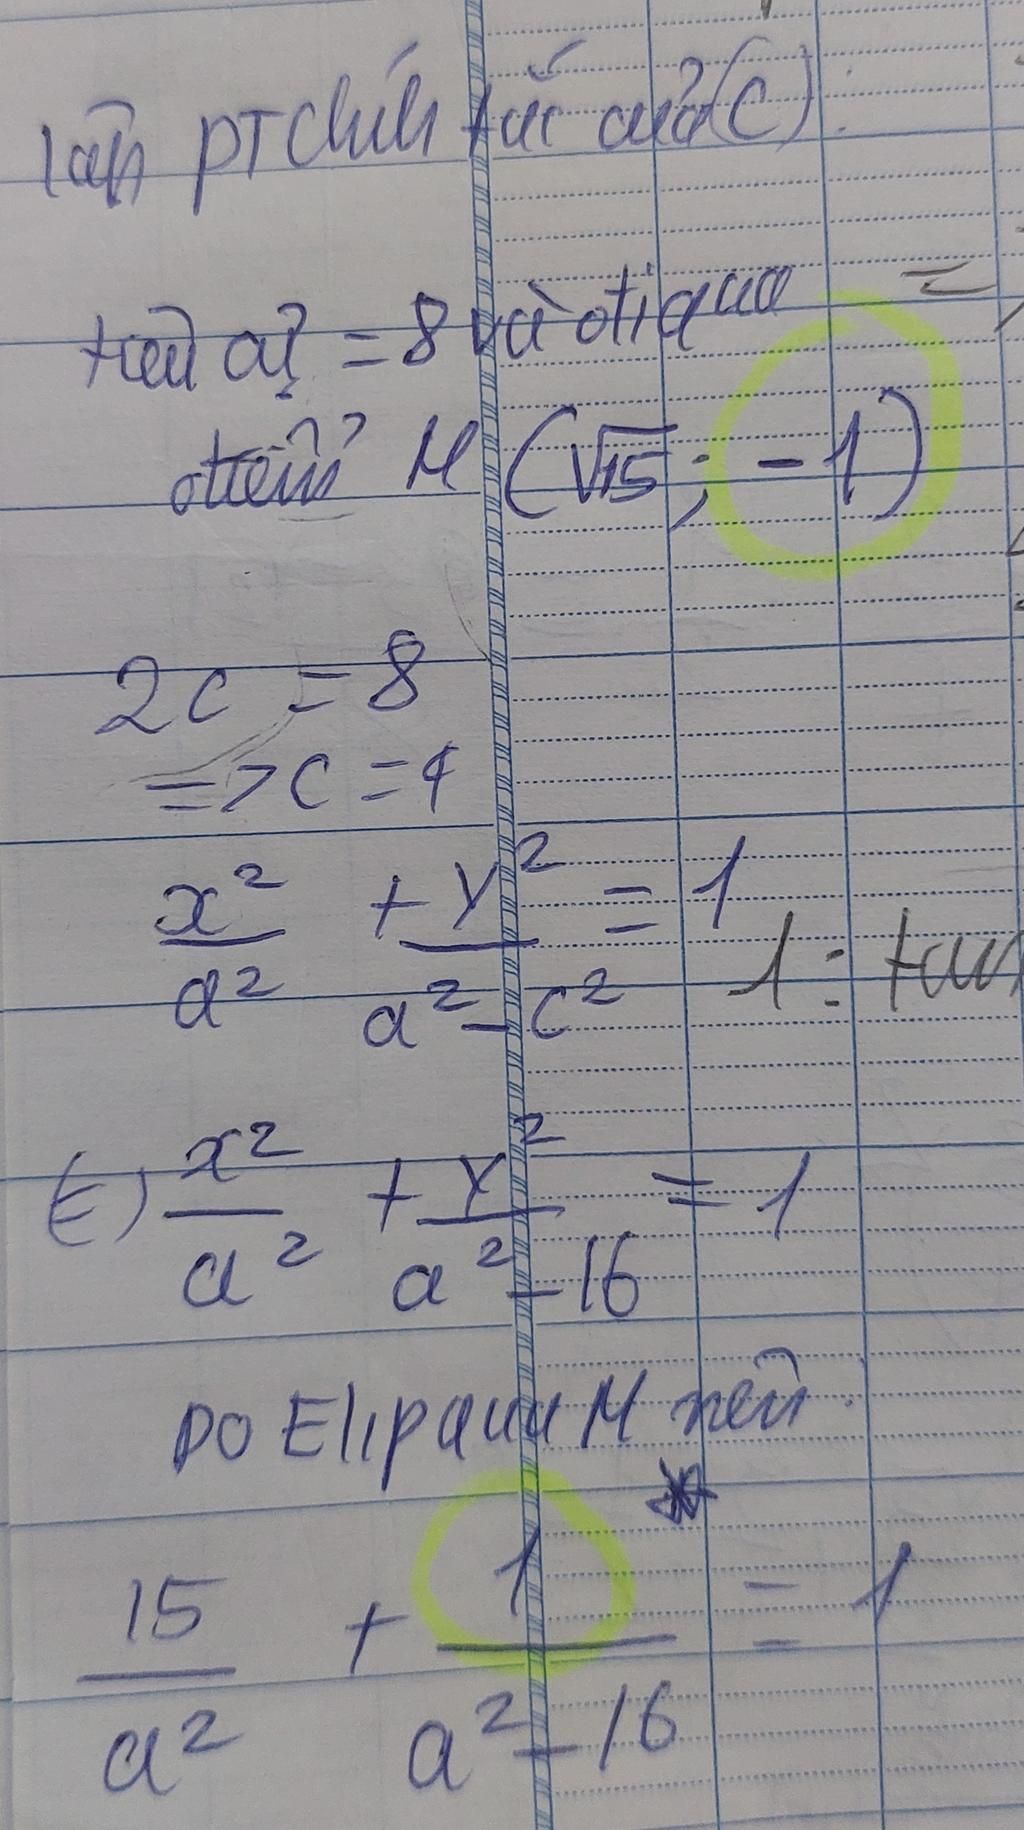 lập PT chính tắc của (C):
tiêu cự = 8 và đi qua
điểm M (√15; -1)
2c = 8
=> c = 4
x² + y² = 1
a² a² - c²
1: tan
(E) x² + y² = 1
a² a² - 16
Do Elip qua M nên:
15 + 1 = 1
a² a² - 16